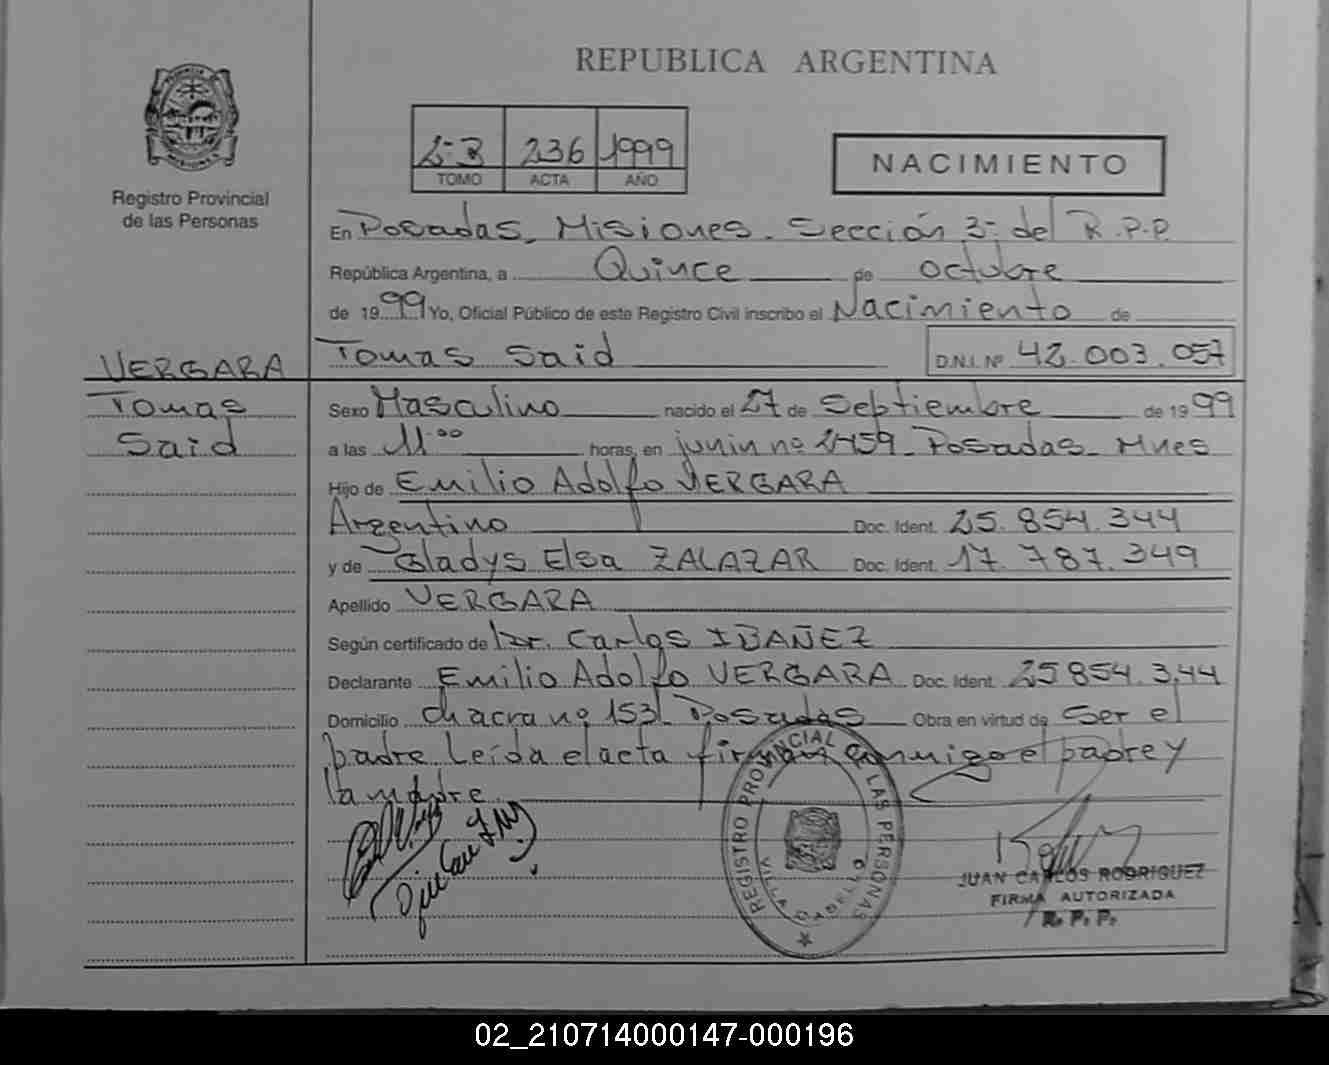 REPUBLICA ARGENTINA
Registro Provincial
de las Personas
2-B 236 1999
TOMO ACTA AÑO
NACIMIENTO
En Posadas, Misiones. Sección 3ª del R.P.P.
República Argentina, a Quince de octubre
de 1999 Yo, Oficial Público de este Registro Civil inscribo el Nacimiento de
Tomas Said D.N.I. Nº 42.003.057
VERGARA
Tomas
Said
Sexo Masculino nacido el 27 de Septiembre de 1999
a las 11:00 horas, en junin nº 2459 - Posadas - Mnes
Hijo de Emilio Adolfo VERGARA
Argentino Doc. Ident. 25.854.344
y de Gladys Elsa ZALAZAR Doc. Ident. 17.787.349
Apellido VERGARA
Según certificado de Dr. Carlos IBAÑEZ
Declarante Emilio Adolfo VERGARA Doc. Ident. 25854.344
Domicilio chacra nº 153 - Posadas Obra en virtud de Ser el
padre Leída el acta firman conmigo el padre y
la madre
REGISTRO PROVINCIAL DE LAS PERSONAS
VILLA CABELLO
JUAN CARLOS RODRIGUEZ
FIRMA AUTORIZADA
R. P. P.
02_210714000147-000196